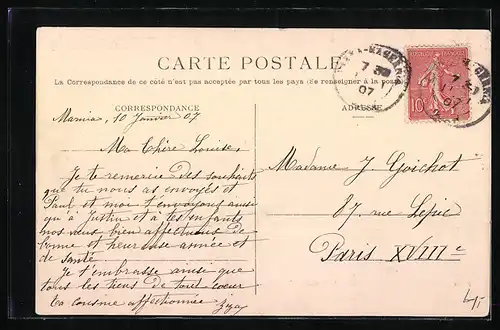 CARTE POSTALE
La Correspondance de ce côté n'est pas acceptée par tous les pays (Se renseigner à la poste)
CORRESPONDANCE
ADRESSE
Marnia, 10 Janvier 07
Ma Chère Louise,
Je te remercie des souhaits
que tu nous as envoyés et
Paul et moi t'envoyons ainsi
qu'à Justin et à tes enfants
nos voeux bien affectueux de
bonne et heureuse année et
de santé
Je t'embrasse ainsi que
tous les tiens de tout coeur
ta cousine affectionnée
Madame J. Goichot
87, rue Lepic
Paris XVIIIe
10
7
07
4,-